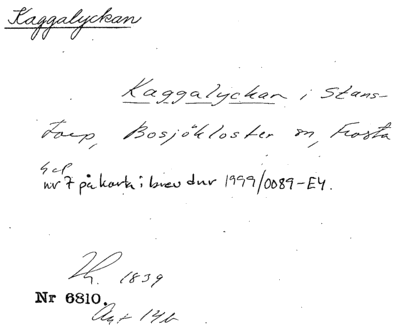 Kaggalyckan
Kaggalyckan i Stans-
torp, Bosjökloster sn, Frosta
hd
nr 7 på karta i brev dnr 1999/0089-E4.
1839
Nr 6810.
Akt 14b